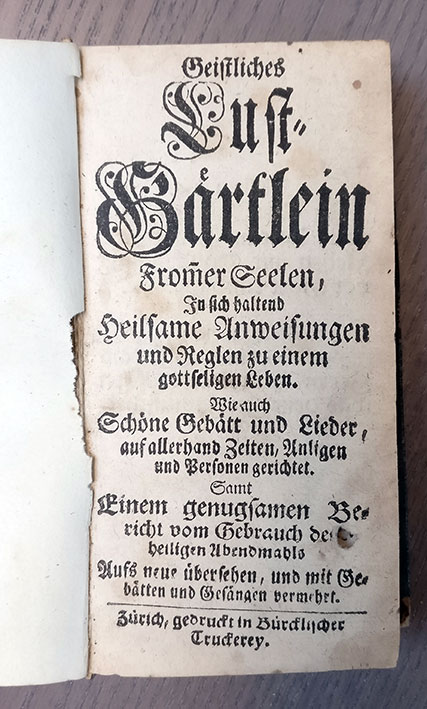 Geistliches
Lust-
Gärtlein
From̄er Seelen,
In sich haltend
Heilsame Anweisungen
und Reglen zu einem
gottseligen Leben.
Wie auch
Schöne Gebätt und Lieder,
auf allerhand Zeiten, Anligen
und Personen gerichtet.
Samt
Einem genugsamen Be-
richt vom Gebrauch des
heiligen Abendmahls
Aufs neue übersehen, und mit Ge-
bätten und Gesängen vermehrt.
Zürich, gedruckt in Bürcklischer
Truckerey.